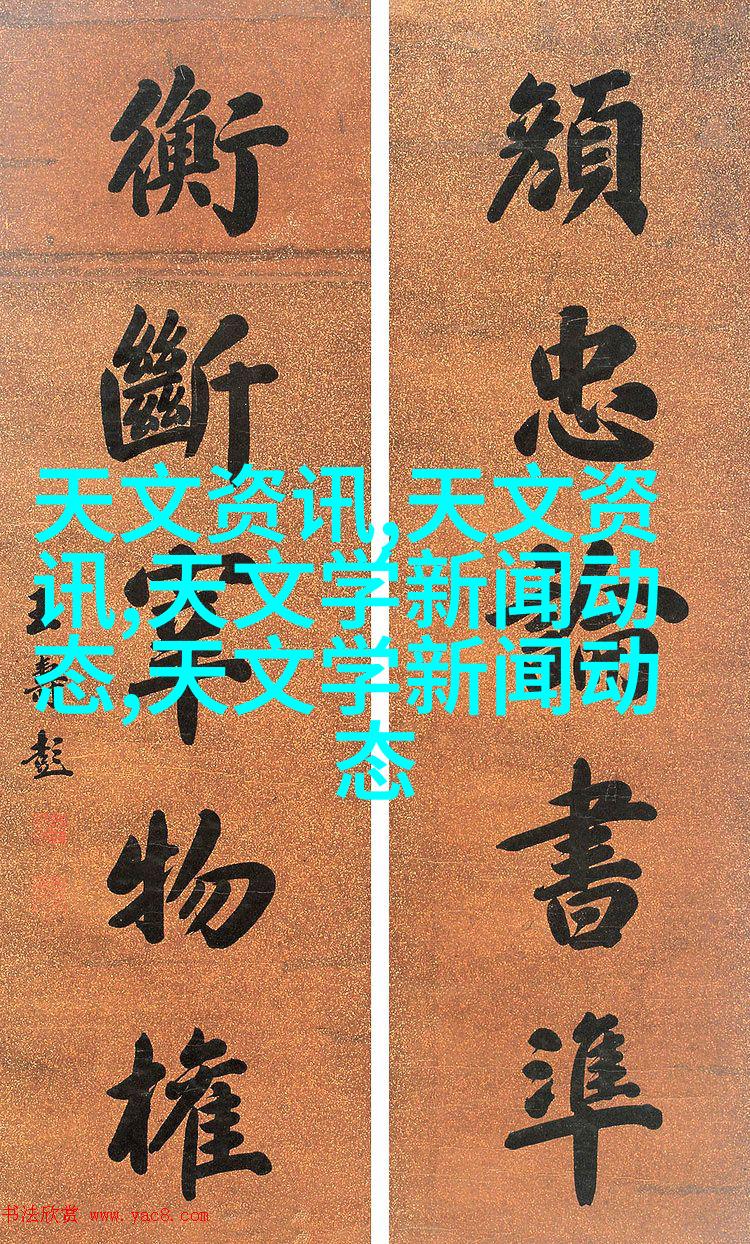 顏忠書準
衡斷宰物權
王壽彭
天文资讯,天文资
讯,天文学新闻动
态,天文学新闻动
态
书法欣赏 www.yac8.com